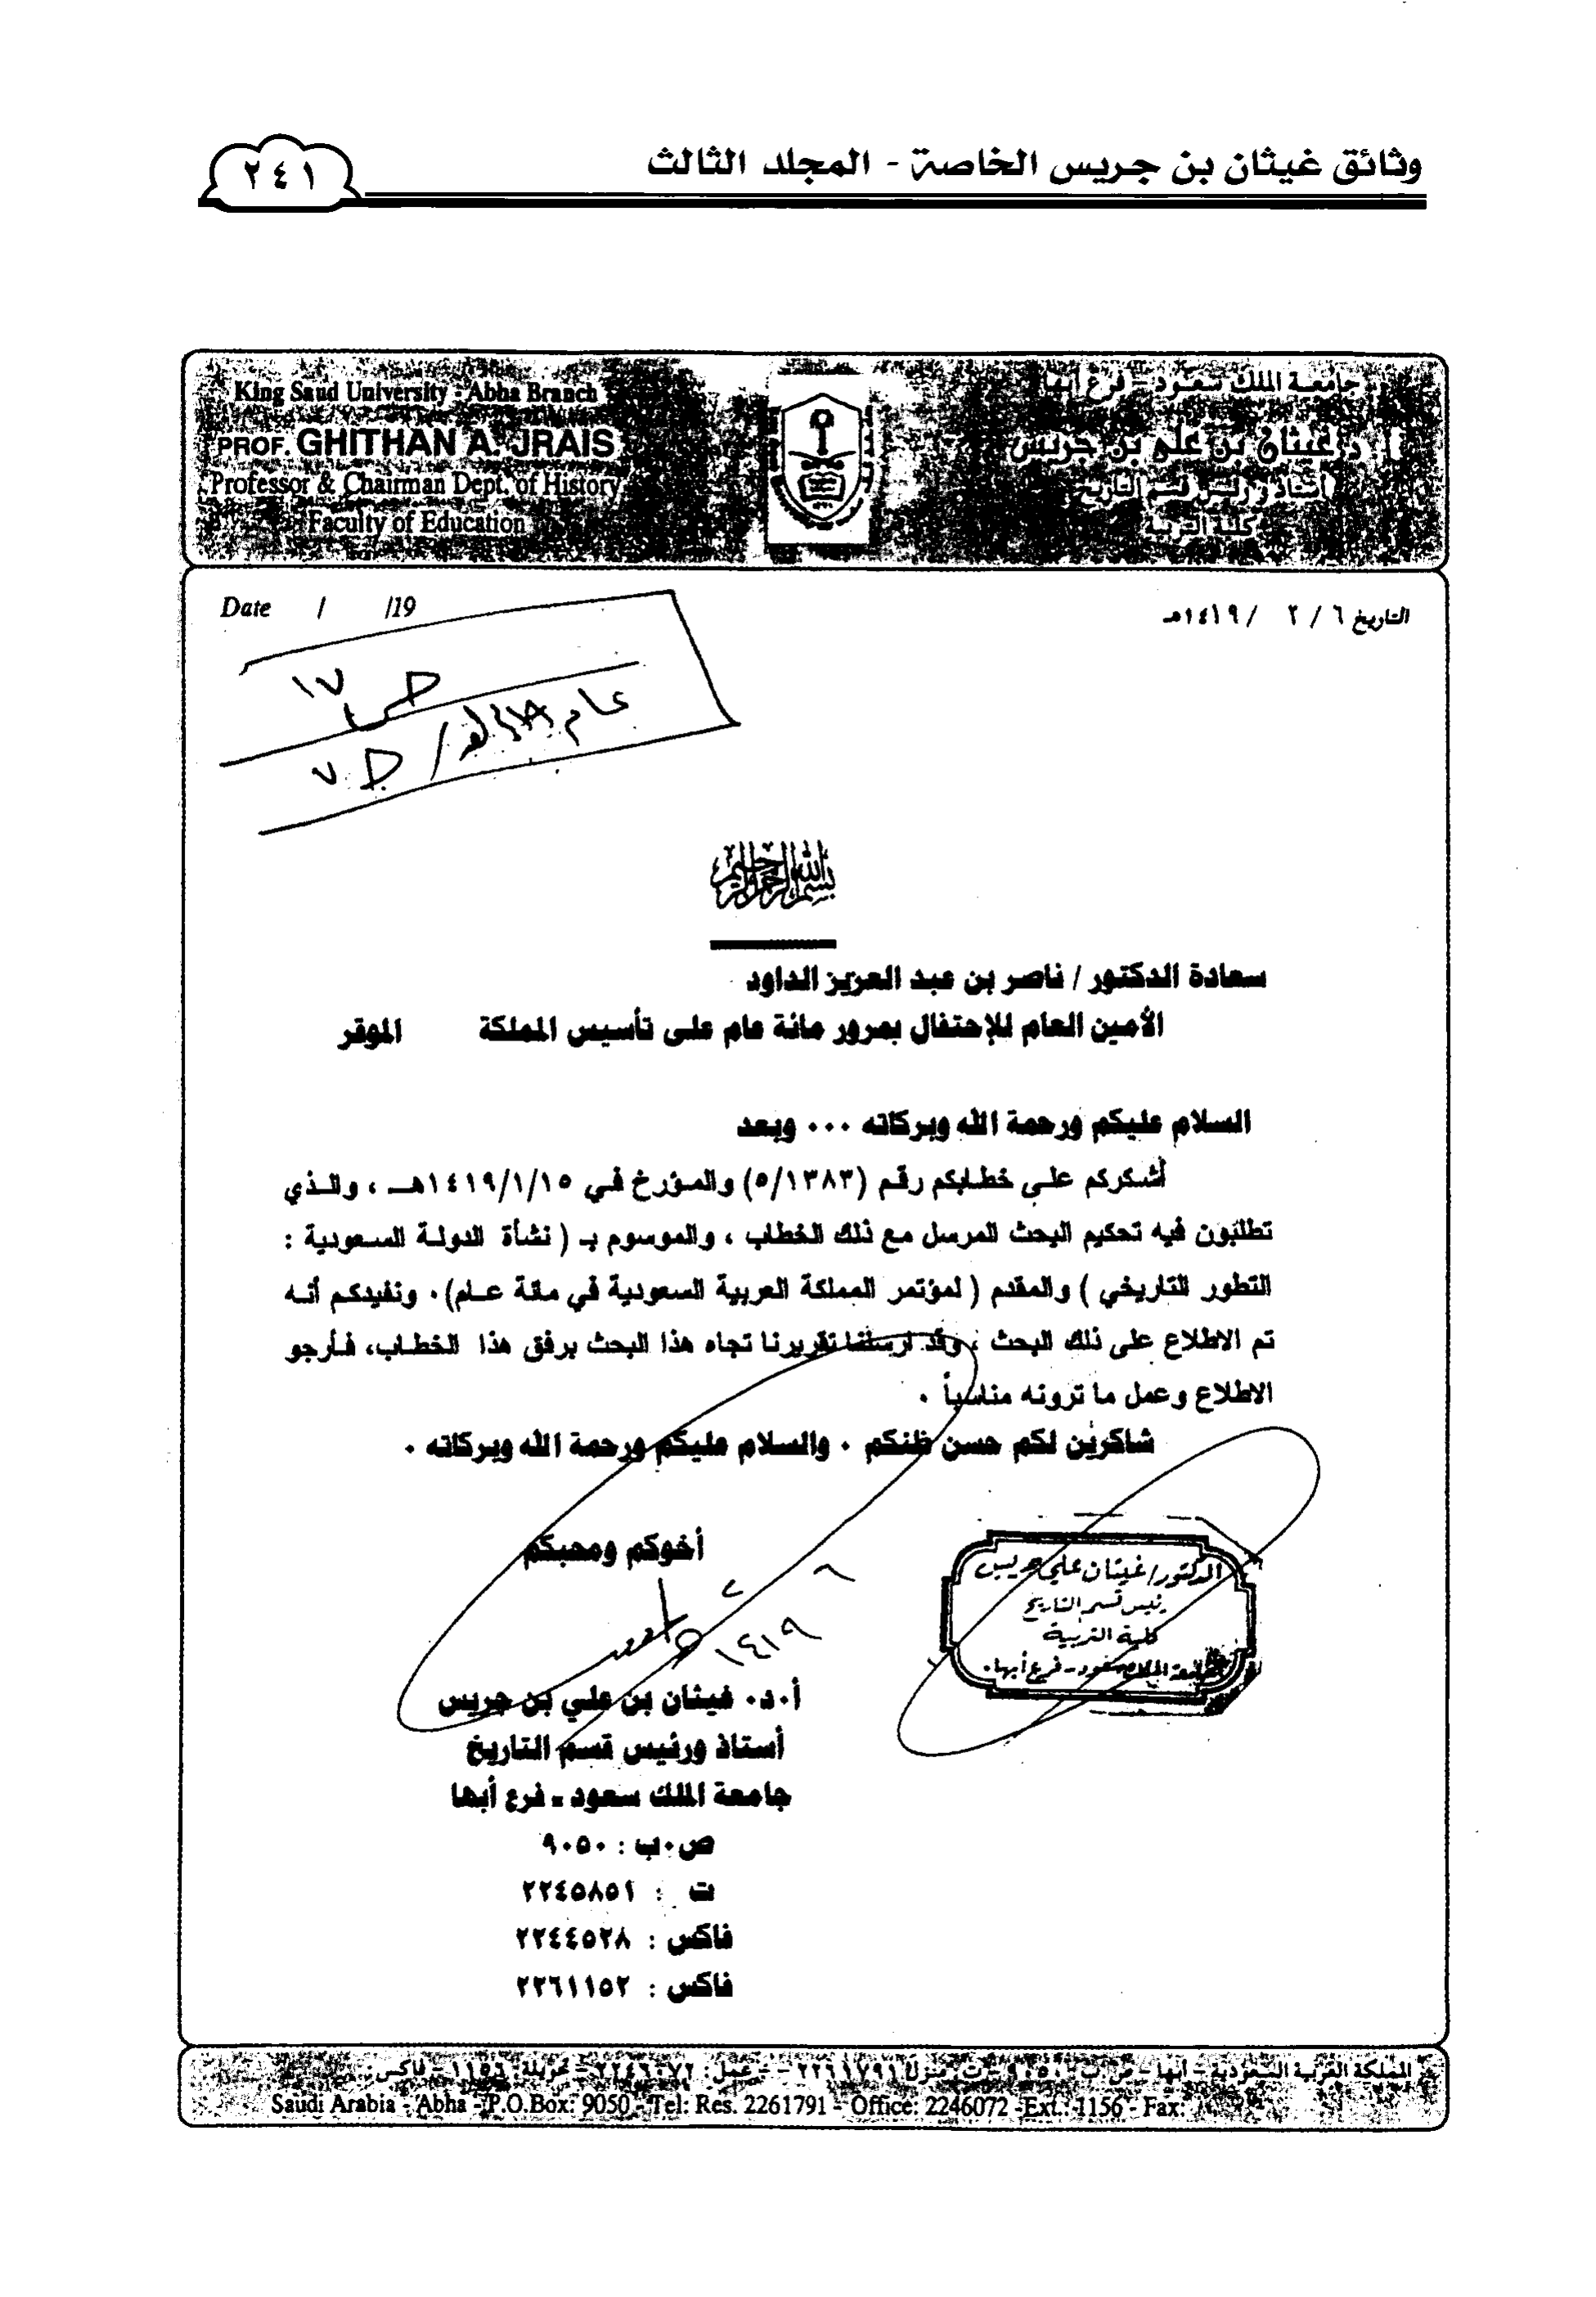 وثائق غيثان بن جريس الخاصة - المجلد الثالث
٢٤١
King Saud University - Abha Branch
PROF. GHITHAN A. JRAIS
Professor & Chairman Dept. of History
Faculty of Education
جامعة الملك سعود - فرع أبها
أ. د. غيثان بن علي بن جريس
أستاذ ورئيس قسم التاريخ
كلية التربية
Date / /19
التاريخ ٦ / ٢ / ١٤١٩هـ
ص ١٧
عام ١٤١٩هـ /
بسم الله الرحمن الرحيم
سعادة الدكتور / ناصر بن عبد العزيز الداود
الأمين العام للإحتفال بمرور مائة عام على تأسيس المملكة الموقر
السلام عليكم ورحمة الله وبركاته ٠٠٠ وبعد
أشكركم على خطابكم رقم (٥/١٣٨٣) والمؤرخ في ١٤١٩/١/١٥هـ ، والذي
تطلبون فيه تحكيم البحث المرسل مع ذلك الخطاب ، والموسوم بـ ( نشأة الدولة السعودية :
التطور التاريخي ) والمقدم ( لمؤتمر المملكة العربية السعودية في مائة عام) ٠ ونفيدكم أنه
تم الاطلاع على ذلك البحث ، وقد ارسلنا تقريرنا تجاه هذا البحث برفق هذا الخطاب، فأرجو
الاطلاع وعمل ما ترونه مناسباً ٠
شاكرين لكم حسن ظنكم ٠ والسلام عليكم ورحمة الله وبركاته ٠
أخوكم ومحبكم
٦
٢
١٤١٩
الدكتور/ غيثان علي جريس
رئيس قسم التاريخ
كلية التربية
جامعة الملك سعود - فرع أبها.
أ٠د٠ غيثان بن علي بن جريس
أستاذ ورئيس قسم التاريخ
جامعة الملك سعود - فرع أبها
ص٠ب : ٩٠٥٠
ت : ٢٢٤٥٨٥١
فاكس : ٢٢٤٤٥٢٨
فاكس : ٢٢٦١١٥٢
المملكة العربية السعودية - أبها - ص.ب ٩٠٥٠ - ت منزل ٢٢٦١٧٩١ - عمل: ٢٢٤٦٠٧٢ - تحويلة: ١١٥٦ - فاكس:
Saudi Arabia - Abha - P.O.Box: 9050 - Tel: Res. 2261791 - Office: 2246072 - Ext.: 1156 - Fax: